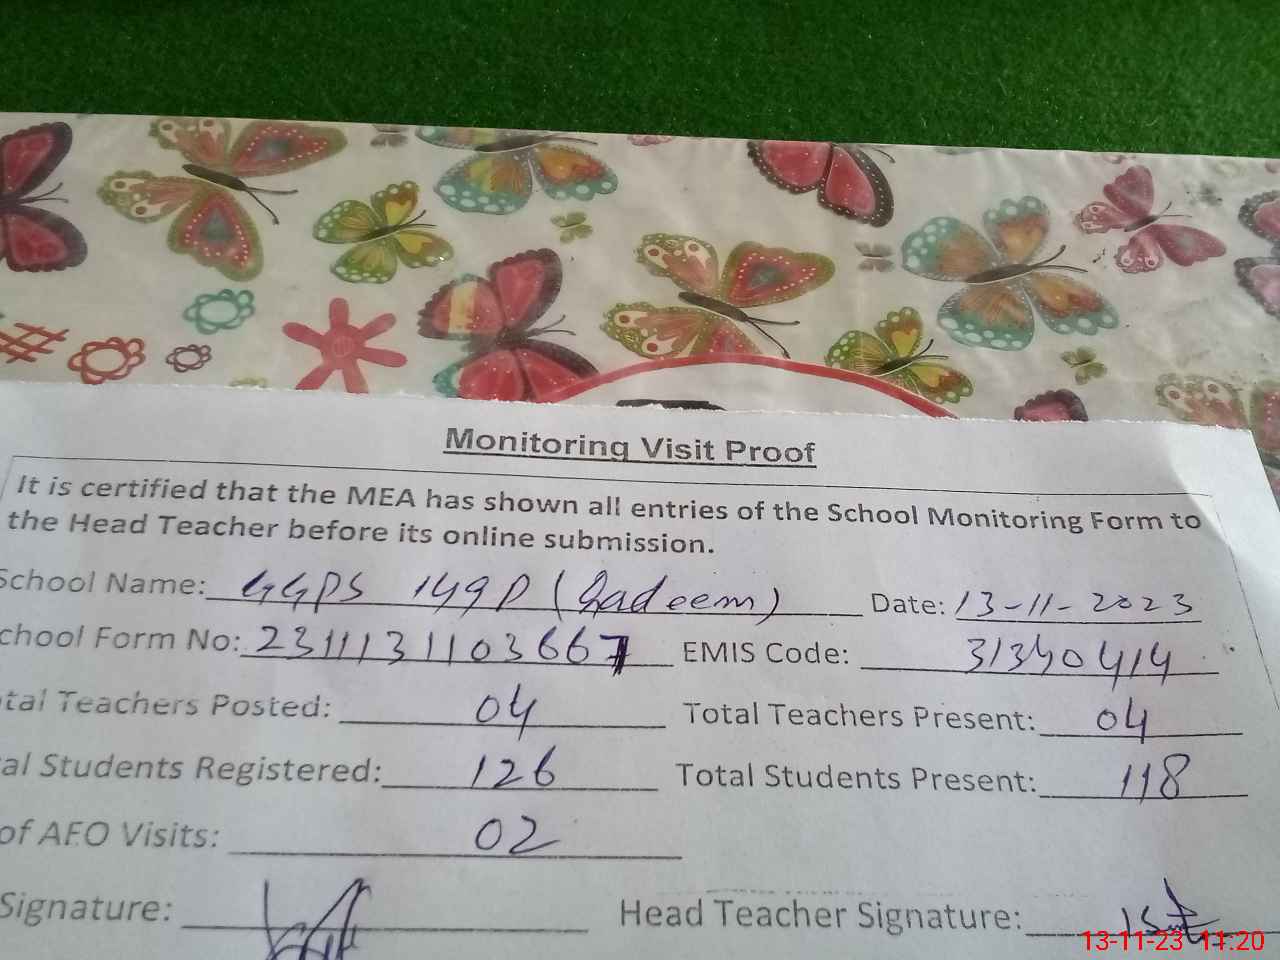 Monitoring Visit Proof
It is certified that the MEA has shown all entries of the School Monitoring Form to
the Head Teacher before its online submission.
School Name: GGPS 149P (Qadeem) Date: 13-11-2023
chool Form No: 2311131103667 EMIS Code: 31340414
tal Teachers Posted: 04 Total Teachers Present: 04
al Students Registered: 126 Total Students Present: 118
of AEO Visits: 02
Signature: Head Teacher Signature:
13-11-23 11:20